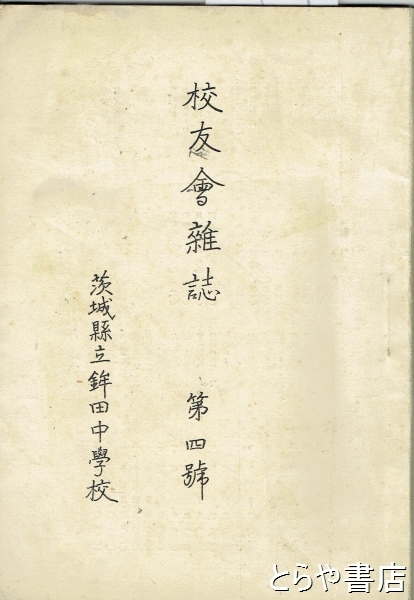 校友會雜誌 第四號
茨城縣立鉾田中學校
とらや書店